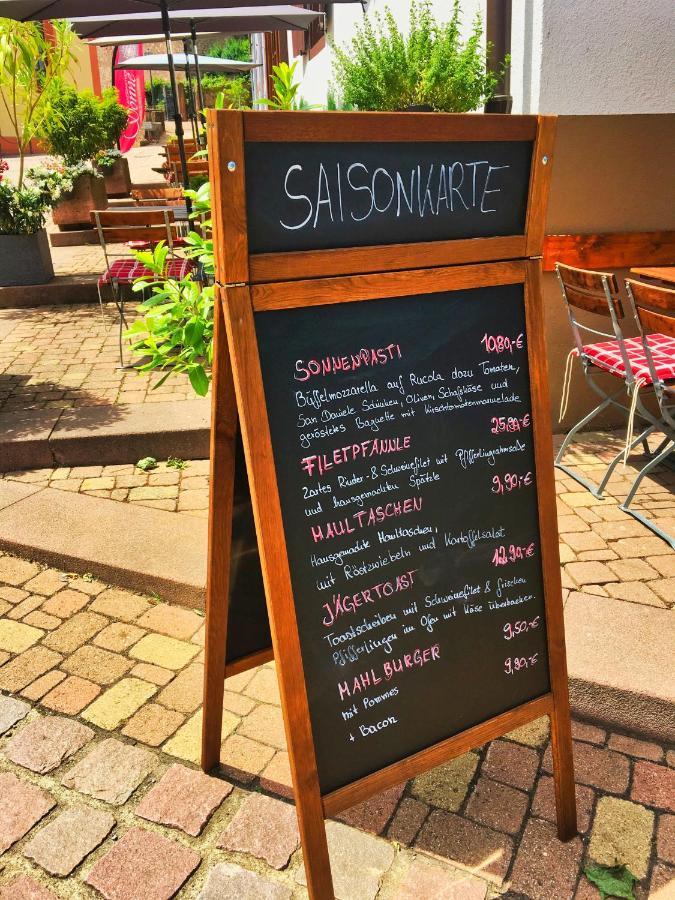 SAISONKARTE
SONNENPASTI 10,80,-€
Büffelmozzarella auf Rucola dazu Tomaten,
San Daniele Schinken, Oliven, Schafskäse und
geröstetes Baguette mit Kirschtomatenmarmelade
FILETPFÄNNLE 25,80,-€
Zartes Rinder- & Schweinefilet mit Pfifferlingrahmsoße
und hausgemachten Spätzle
MAULTASCHEN 9,90,-€
Hausgemachte Maultaschen,
mit Röstzwiebeln und Kartoffelsalat
JÄGERTOAST 12,90,-€
Toastscheiben mit Schweinefilet & frischen
Pfifferlingen im Ofen mit Käse überbacken.
MAHLBURGER 9,50,-€
mit Pommes
+ Bacon 9,90,-€